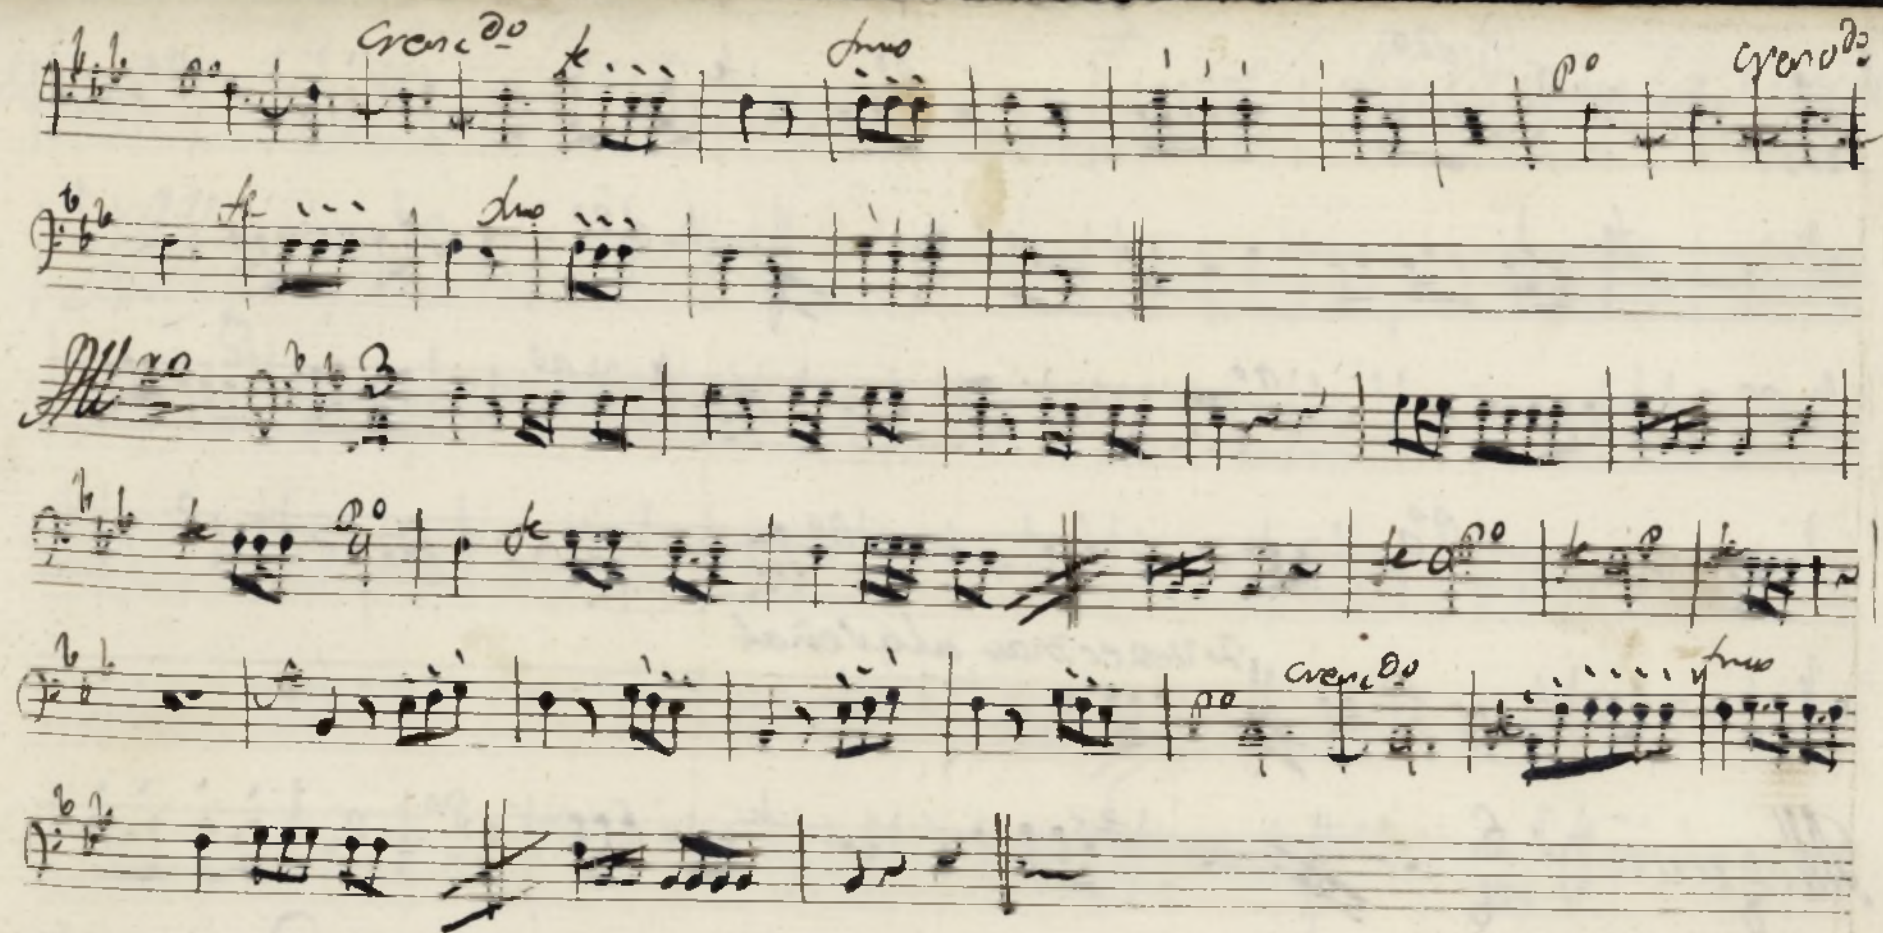 po Crescdo fe fmo po Crescdo
fe fmo
All 3 4
fe po fe fe po fe po fe
po Crescdo fe fmo